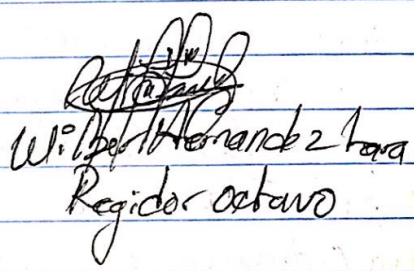 Wilbert Hernandez Lara
Regidor octavo